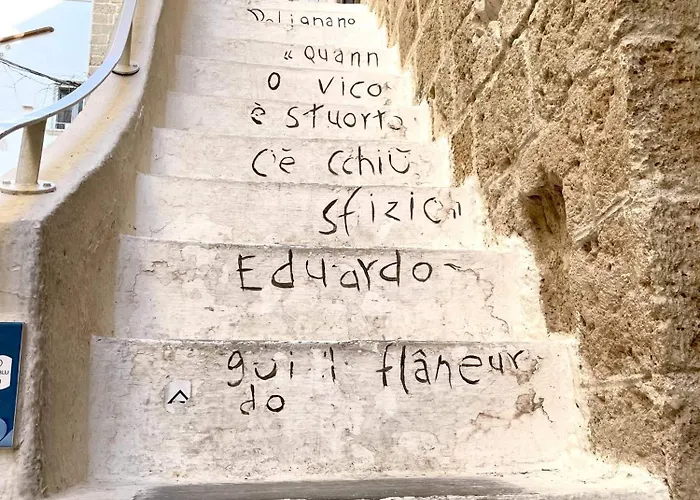 Polignano
" Quann
O vico
è stuorto
C'è cchiù
sfizio "
Eduardo
gui il flâneur
do